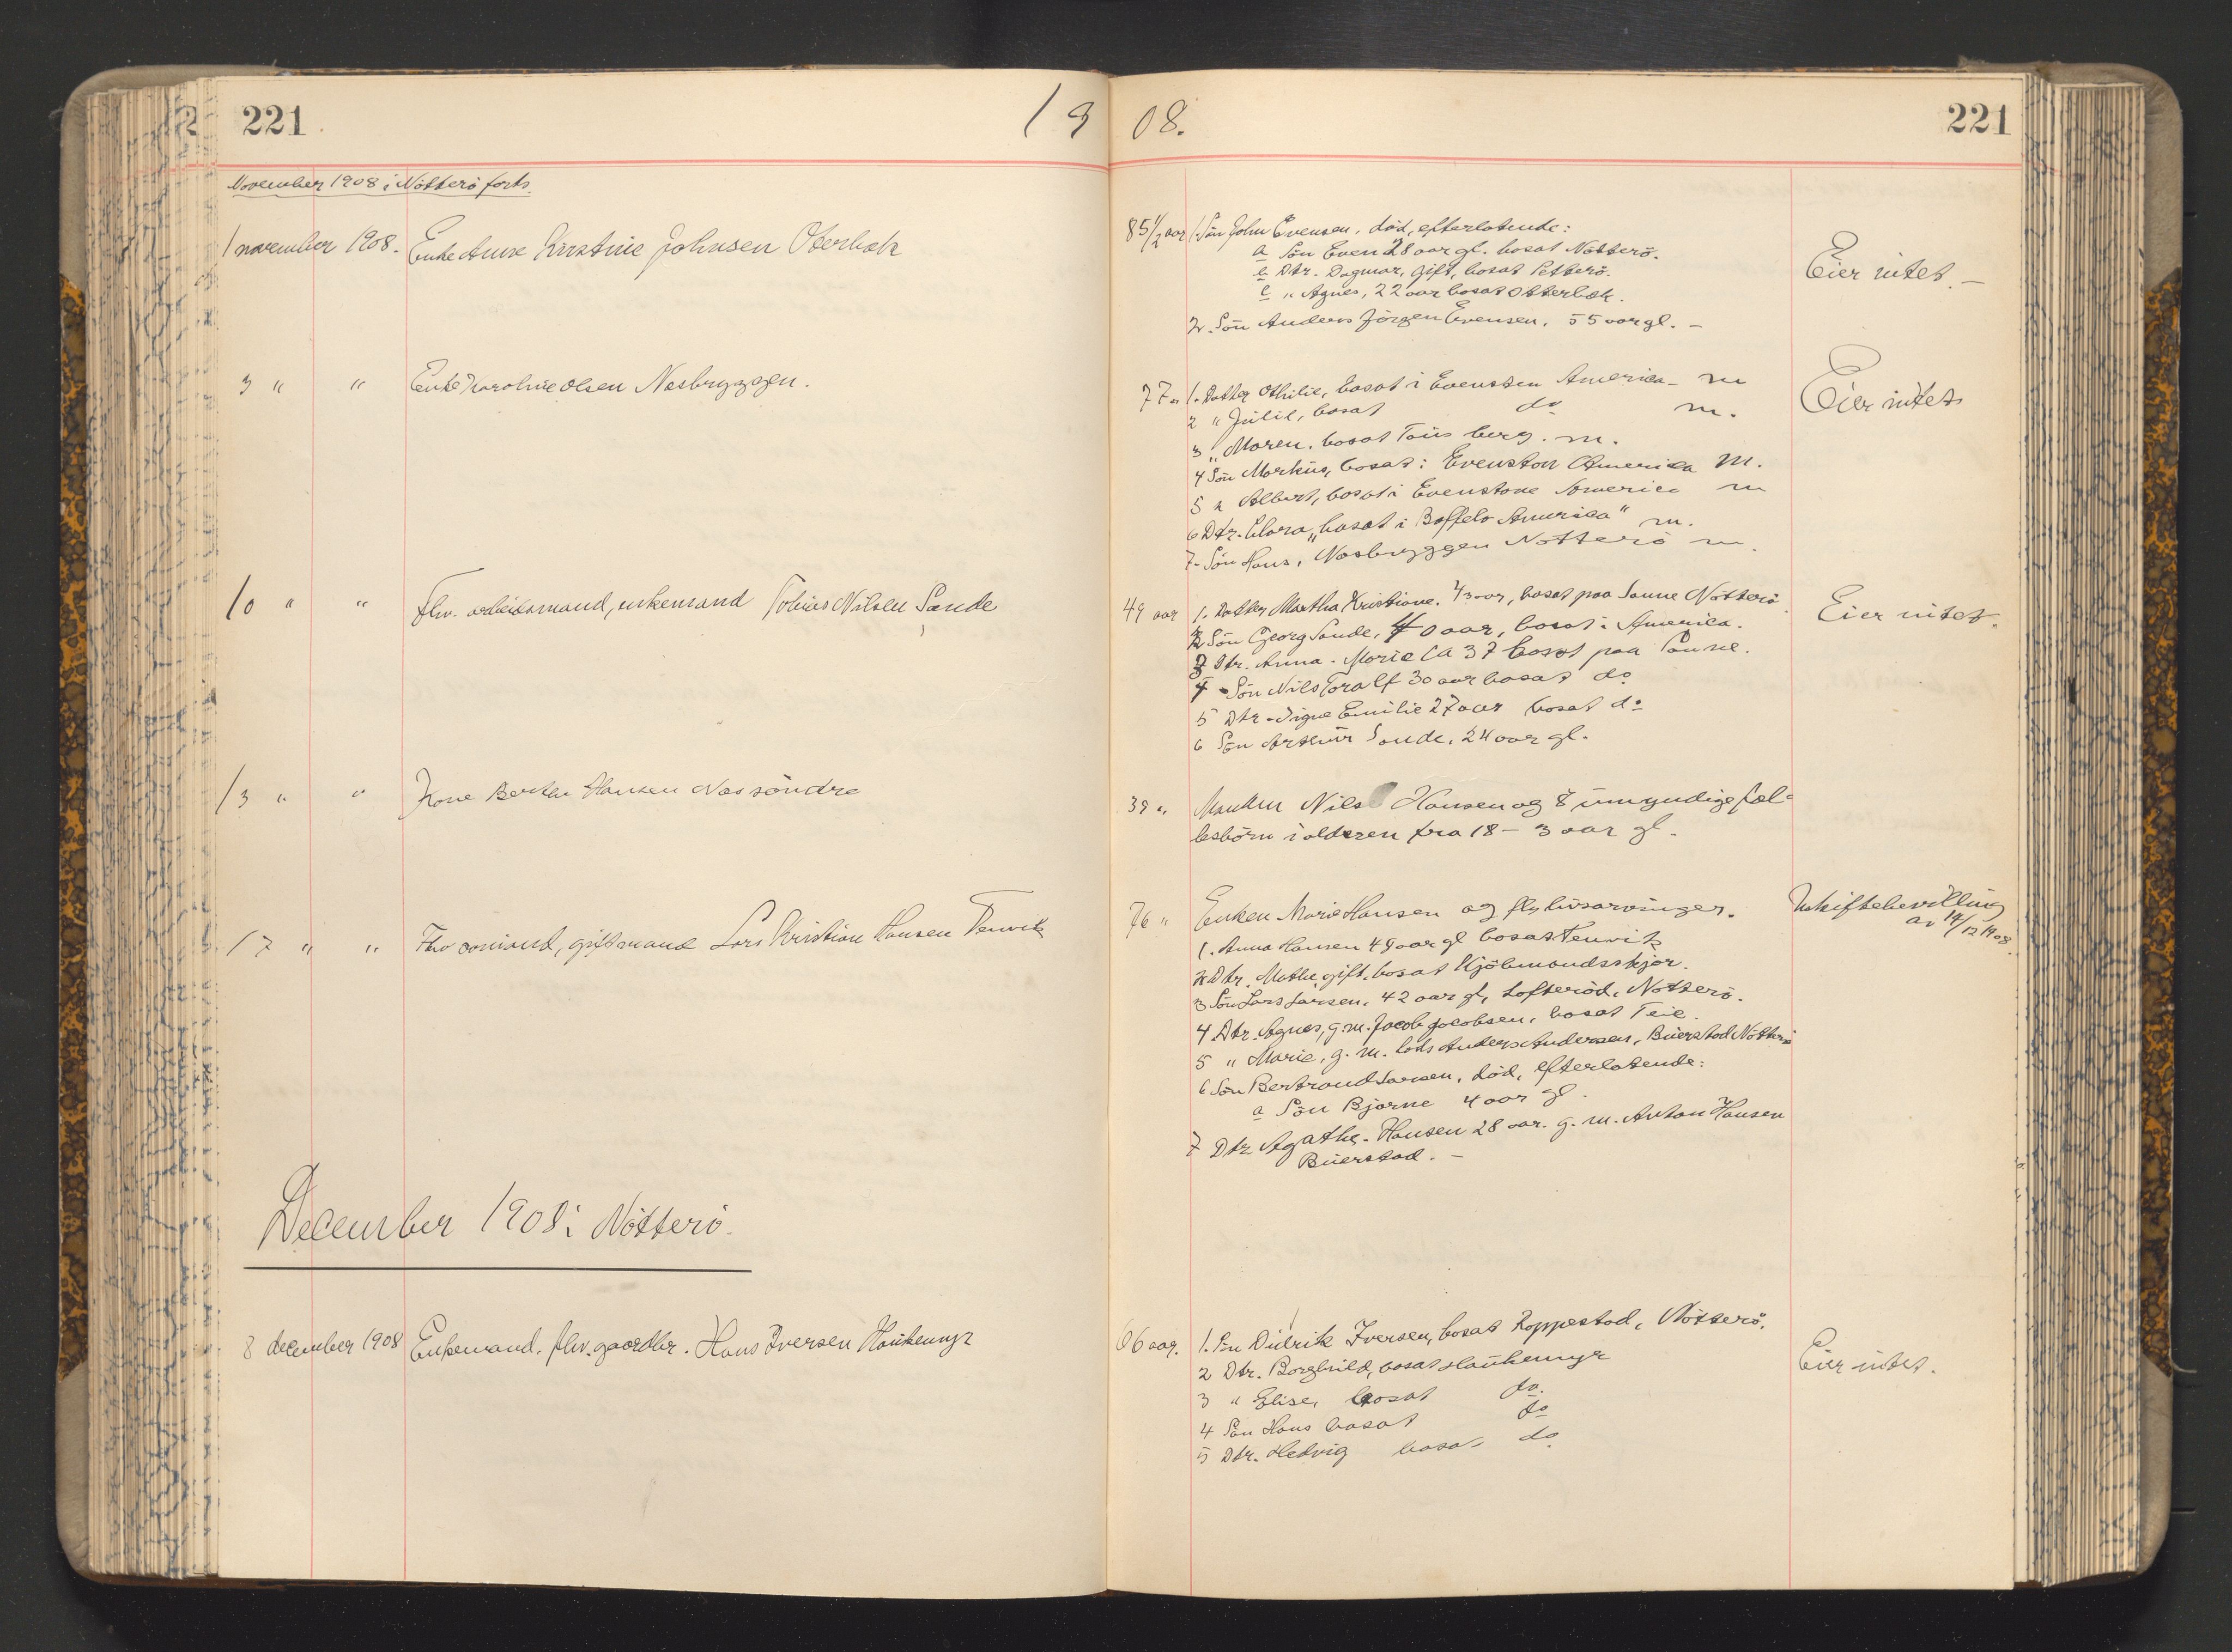 221
19
08.
221
November 1908 i Nötterö forts.
1 november 1908. Enke Anne Kirstine Johnsen Oterbæk
85 1/2 aar 1. Sön John Evensen, död, efterlatende:
a Sön Even 28 aar gl. bosat Nötterö.
b Dtr. Dagmar, gift, bosat Petterö.
c " Agnes, 22 aar bosat Otterbæk.
2. Sön Anders Jörgen Evensen, 55 aar gl. –
Eier intet. –
3 " " Enke Karoline Olsen Nesbryggen.
77 " 1. Datter Othilie, bosat i Evensten America – m
2 " Julie, bosat do m.
3 " Maren, bosat Töns berg. m.
4 Sön Markus, bosat i Evenston America m.
5 " Albert, bosat i Evenstone America m
6 Dtr. Clara, bosat i "Boffelo America" m.
7 – Sön Hans, Nesbryggen Nötterö m.
Eier intet
10 " " flv. arbeidsmand, enkemand Tobias Nilsen Sande
49 aar 1. Datter Martha Kristiane. 43 aar, bosat paa Sanne Nötterö.
2 Sön Georg Sande, 40 aar, bosat i America.
3 Dtr. Anna – Marie Ca 37 bosat paa Sanne.
4 – Sön Nils Toralf 30 aar bosat do
5 Dtr – Signe Emilie 27 aar bosat do
6 Sön Arthur Sande, 24 aar gl.
Eier intet.
13 " " Kone Berthe Hansen Nes söndre
39 " Manken Nils Hansen og 8 umyndige fæl-
lesbörn i alderen fra 18 – 3 aar gl.
17 " " Flv sömand, giftmand Lars Kristian Hansen Tenvik
76 " Enken Marie Hansen og flg livsarvinger.
1. Anna Hansen 49 aar gl bosat Tenvik
2 Dtr. Mathe, gift, bosat Kjöbmandsskjær.
3 Sön Lars Larsen, 42 aar gl, Lofteröd, Nötterö.
4. Dtr. Agnes, g. m. Jacob Jacobsen, bosat Teie.
5 " Marie, g. m. lods Anders Andersen, Buerstad Nötterö
6 Sön Bertrand Larsen, död, efterlatende:
a Sön Bjarne 4 aar gl.
7 Dtr Agathe – Hansen 28 aar. g. m. Anton Hansen
Buerstad. –
Uskiftebevilling
av 14/12 1908.
December 1908 i Nötterö.
8 december 1908 Enkemand, flv. gaardbr. Hans Iversen Haukemyr
66 aar. 1. Sön Didrik Iversen, bosat Roppestad, Nötterö.
2 Dtr. Borghild, bosat Haukemyr
3 " Elise, bosat do.
4 Sön Hans bosat do
5 Dtr. Hedvig bosat do
Eier intet.